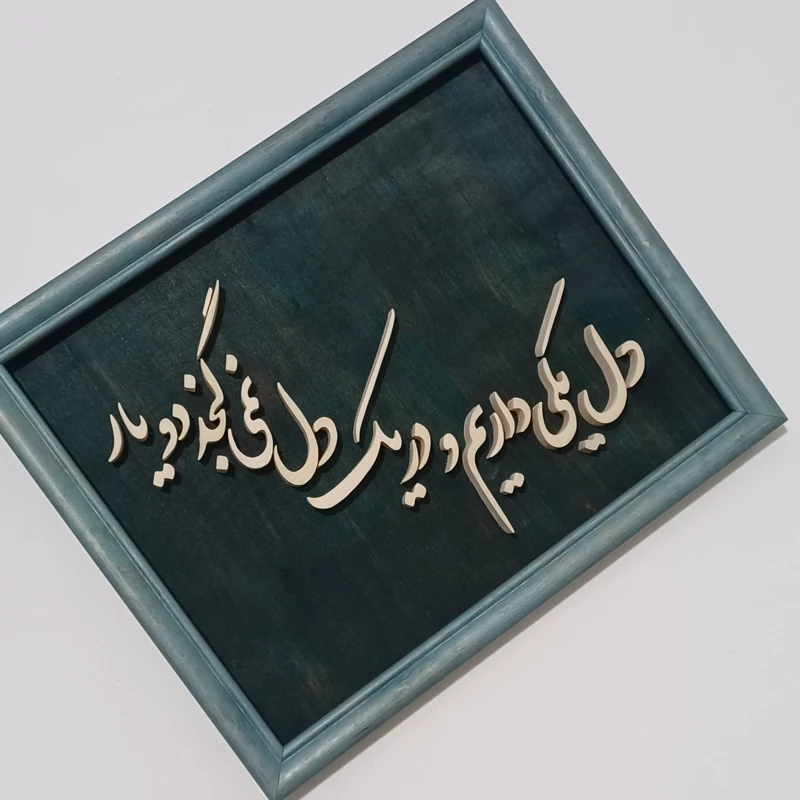 دل یکی داریم و در یک دل نمی گنجد دو یار